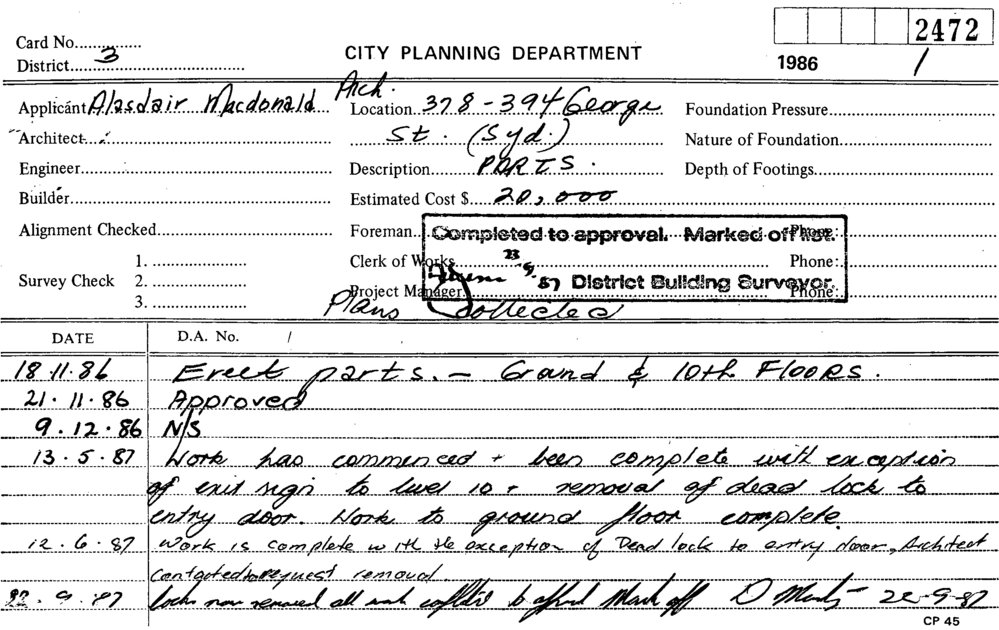 2472
Card No.
CITY PLANNING DEPARTMENT
District 3
1986 /
Applicant Alasdair Macdonald Arch.
Location 378-394 George
Foundation Pressure
Architect
St. (Syd.)
Nature of Foundation
Engineer
Description PARTS.
Depth of Footings
Builder
Estimated Cost $ 20,000
Alignment Checked
Foreman
Phone:
Completed to approval. Marked off list.
1.
Clerk of Works
Phone:
23.9.87 District Building Surveyor.
Survey Check 2.
Project Manager
Phone:
3.
Plans Collected
DATE D.A. No. /
18.11.86 Erect parts. - Ground & 10th FLOORS.
21.11.86 Approved
9.12.86 N/S
13.5.87 Work has commenced + been complete with exception
of exit sign to level 10 + removal of dead lock to
entry door. Work to ground floor complete.
12.6.87 Work is complete with the exception of Dead lock to entry door, Architect
contacted to request removal
22.9.87 Locks now removed all work to Mark off D 22-9-87
CP 45